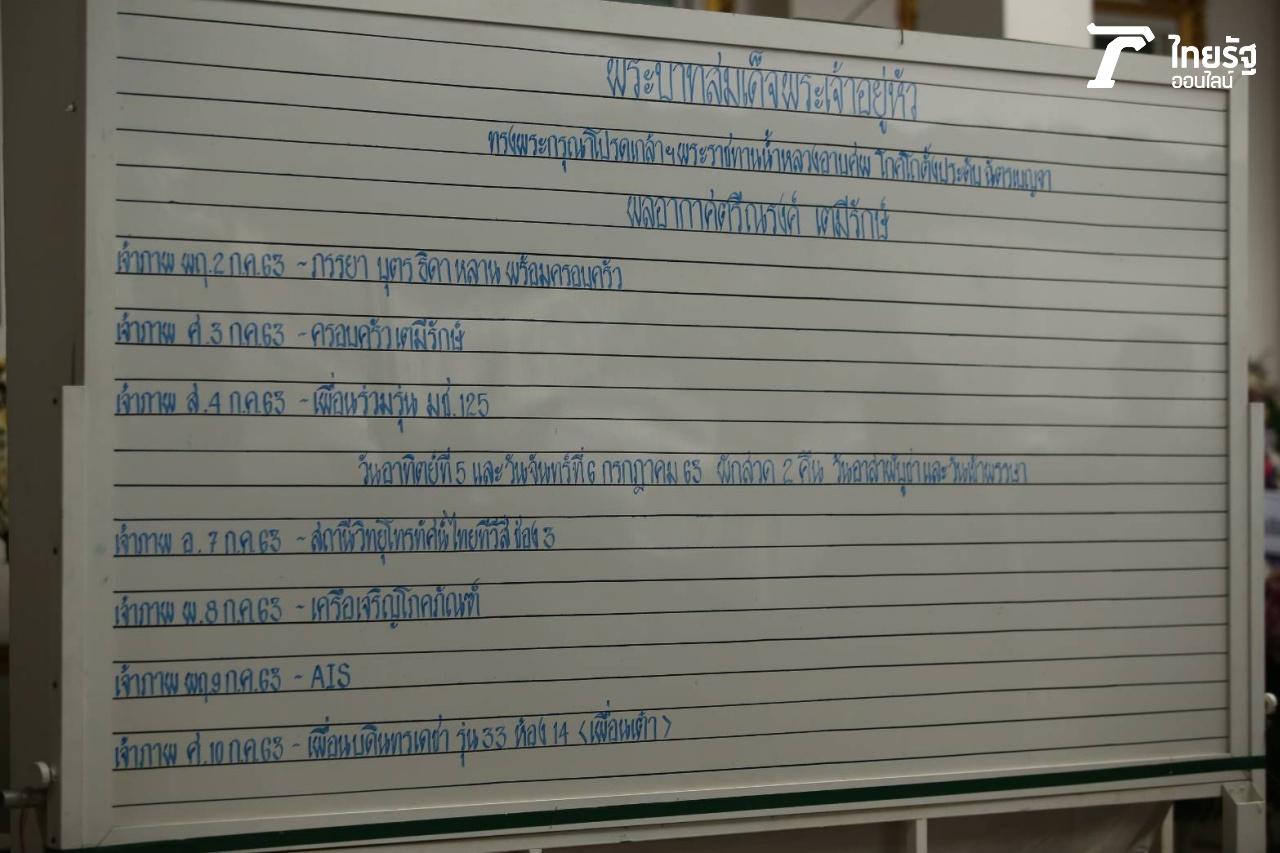 ไทยรัฐ
ออนไลน์
พระบาทสมเด็จพระเจ้าอยู่หัว
ทรงพระกรุณาโปรดเกล้าฯพระราชทานน้ำหลวงอาบศพ โกศโถตั้งประดับ ฉัตรเบญจา
พลอากาศตรีณรงค์ เตมีรักษ์
เจ้าภาพ พฤ.2 ก.ค.63 - ภรรยา บุตร ธิดา หลาน พร้อมครอบครัว
เจ้าภาพ ศ.3 ก.ค.63 - ครอบครัวเตมีรักษ์
เจ้าภาพ ส.4 ก.ค.63 - เพื่อนร่วมรุ่น มช.125
วันอาทิตย์ที่ 5 และวันจันทร์ที่ 6 กรกฎาคม 63 พักสวด 2 คืน วันอาสาฬบูชาและวันเข้าพรรษา
เจ้าภาพ อ.7 ก.ค.63 - สถานีวิทยุโทรทัศน์ไทยทีวีสี ช่อง 3
เจ้าภาพ พ.8 ก.ค.63 - เครือเจริญโภคภัณฑ์
เจ้าภาพ พฤ.9 ก.ค.63 - AIS
เจ้าภาพ ศ.10 ก.ค.63 - เพื่อนบดินทรเดชา รุ่น 33 ห้อง 14 <เพื่อนเต้า>